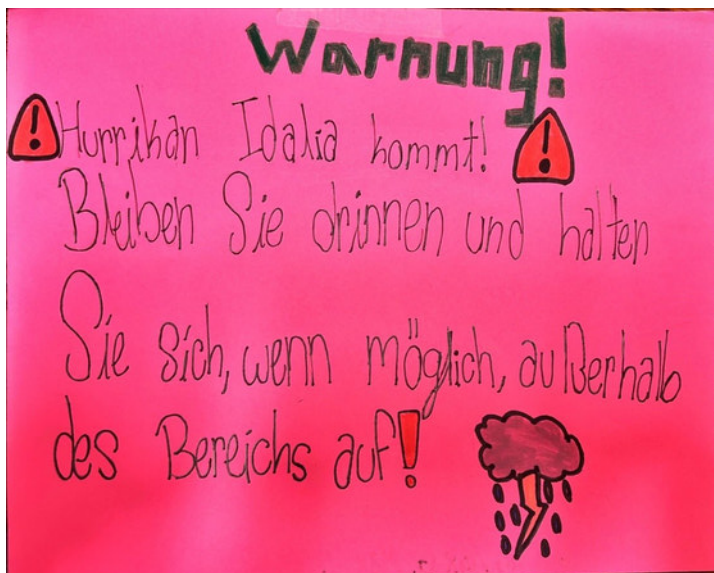 Warnung!
Hurrikan Idalia kommt!
Bleiben Sie drinnen und halten
Sie sich, wenn möglich, außerhalb
des Bereichs auf!